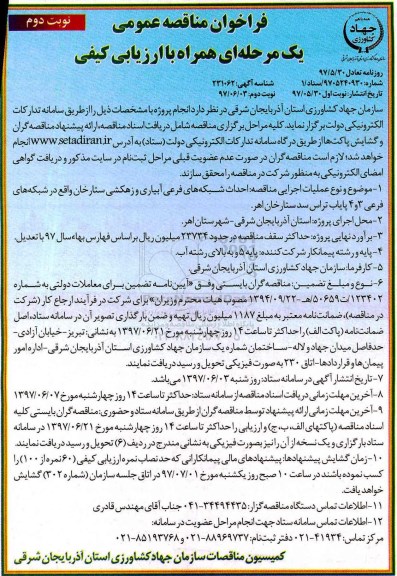 نوبت دوم
فراخوان مناقصه عمومی
یک مرحله‌ای همراه با ارزیابی کیفی
جهاد
کشاورزی
روزنامه تعادل ۹۷/۵/۳۰
شماره: ۹۷۰۵۲۴۰۹۳۰/سناد/۱ شناسه آگهی: ۲۳۱۰۶۲
تاریخ انتشار: نوبت اول ۹۷/۰۵/۳۰ نوبت دوم: ۹۷/۰۶/۰۳
سازمان جهاد کشاورزی استان آذربایجان شرقی در نظر دارد انجام پروژه با مشخصات ذیل را از طریق سامانه تدارکات
الکترونیکی دولت برگزار نماید. کلیه مراحل برگزاری مناقصه شامل دریافت اسناد مناقصه، ارائه پیشنهاد مناقصه گران
و گشایش پاکت‌ها از طریق درگاه سامانه تدارکات الکترونیکی دولت (ستاد) به آدرس www.setadiran.ir انجام
خواهد شد؛ لازم است مناقصه گران در صورت عدم عضویت قبلی مراحل ثبت‌نام در سایت مذکور و دریافت گواهی
امضای الکترونیکی به منظور شرکت در مناقصه را محقق سازند.
۱- موضوع و نوع عملیات اجرایی مناقصه: احداث شبکه‌های فرعی آبیاری و زهکشی ستارخان واقع در شبکه‌های
فرعی ۳ و ۴ پایاب تراس سد ستارخان اهر.
۲- محل اجرای پروژه: استان آذربایجان شرقی - شهرستان اهر.
۳- برآورد نهایی پروژه: حداکثر سقف مناقصه در حدود ۲۳۷۳۴ میلیون ریال بر اساس فهارس بهاء سال ۹۷ با تعدیل.
۴- پایه و رشته پیمانکار شرکت کننده: پایه ۵ و به بالای رشته آب.
۵- کارفرما: سازمان جهاد کشاورزی استان آذربایجان شرقی.
۶- نوع و مبلغ تضمین: مناقصه گران بایستی وفق «آیین‌نامه تضمین برای معاملات دولتی به شماره
۱۲۳۴۰۲/ت۵۰۶۵۹هـ - ۱۳۹۴/۰۹/۲۲ مصوب هیات محترم وزیران» برای شرکت در فرآیند ارجاع کار (شرکت
در مناقصه)، ضمانت‌نامه معتبر به مبلغ ۱۱۸۷ میلیون ریال تهیه و ضمن بارگذاری تصویر آن در سامانه ستاد، اصل
ضمانت‌نامه (پاکت الف) را حداکثر تا ساعت ۱۴ روز چهارشنبه مورخ ۱۳۹۷/۰۶/۲۱ به نشانی: تبریز- خیابان آزادی-
حدفاصل میدان جهاد و لاله - ساختمان شماره یک سازمان جهاد کشاورزی استان آذربایجان شرقی- اداره امور
پیمان‌ها و قراردادها- اتاق ۲۳۰ به صورت فیزیکی تحویل و رسید دریافت نمایند.
۷- تاریخ انتشار آگهی در سامانه ستاد: روز شنبه ۱۳۹۷/۰۶/۰۳ می‌باشد.
۸- آخرین مهلت زمانی دریافت اسناد مناقصه از سامانه ستاد: حداکثر تا ساعت ۱۴ روز چهارشنبه مورخ ۱۳۹۷/۰۶/۰۷
۹- آخرین مهلت زمانی ارائه پیشنهاد توسط مناقصه گران از طریق سامانه ستاد و حضوری: مناقصه گران بایستی کلیه
اسناد مناقصه (پاکتهای الف، ب، ج) و ارزیابی را حداکثر تا ساعت ۱۴ روز چهارشنبه مورخ ۱۳۹۷/۰۶/۲۱ در سامانه
ستاد بارگزاری و یک نسخه از آن را نیز بصورت فیزیکی به نشانی مندرج در ردیف (۶) تحویل و رسید دریافت نمایند.
۱۰- زمان گشایش پیشنهادها: پیشنهادهای مالی پیمانکارانی که حد نصاب نمره ارزیابی کیفی (۶۰ نمره از ۱۰۰) را
کسب نموده باشند در ساعت ۱۰ صبح روز یکشنبه مورخ ۹۷/۰۷/۰۱ در اتاق جلسه سازمان (شماره ۳۰۲) گشایش
خواهد یافت.
۱۱- اطلاعات تماس دستگاه مناقصه گزار: ۳۴۴۹۴۴۳۵-۰۴۱ جناب آقای مهندس قادری
۱۲- اطلاعات تماس سامانه ستاد جهت انجام مراحل عضویت در سامانه:
مرکز تماس: ۴۱۹۳۴-۰۲۱ دفتر ثبت‌نام: ۸۸۹۶۹۷۳۷-۰۲۱ و ۸۵۱۹۳۷۶۸-۰۲۱
کمیسیون مناقصات سازمان جهاد کشاورزی استان آذربایجان شرقی